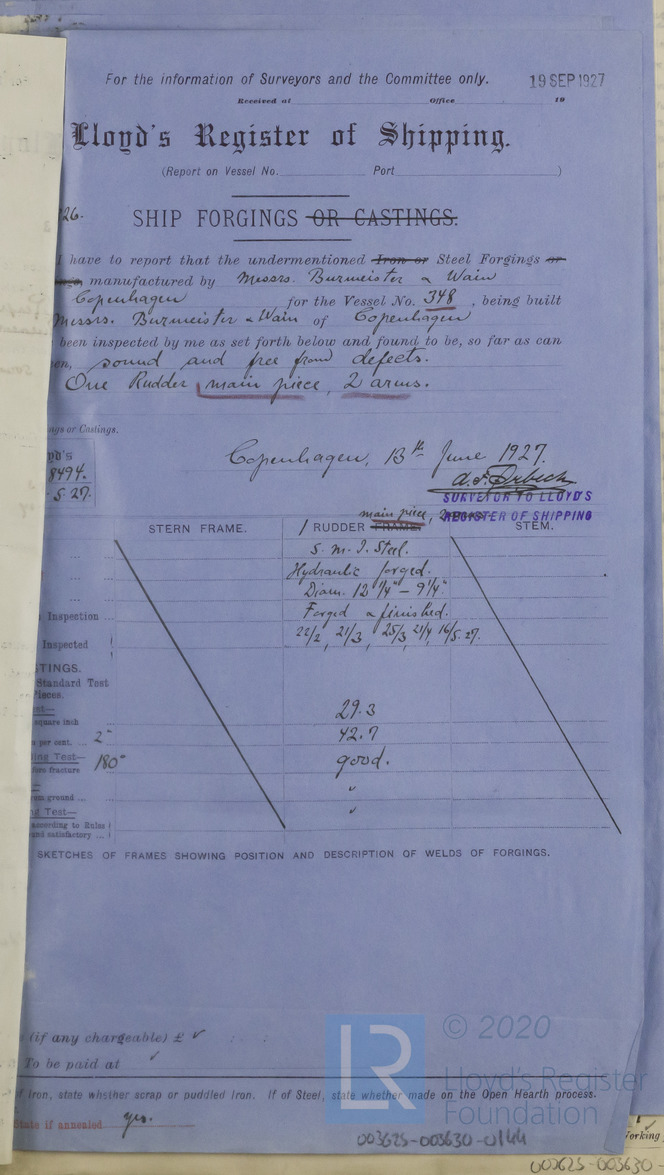 For the information of Surveyors and the Committee only.
19 SEP 1927
Received at Office 19
Lloyd's Register of Shipping.
(Report on Vessel No. Port )
26.
SHIP FORGINGS OR CASTINGS.
I have to report that the undermentioned Iron or Steel Forgings or
manufactured by Messrs. Burmeister & Wain
Copenhagen for the Vessel No. 348, being built
Messrs. Burmeister & Wain of Copenhagen
been inspected by me as set forth below and found to be, so far as can
en, sound and free from defects.
One Rudder main piece, 2 arms.
ngs or Castings.
yd's
8494.
5.27.
Copenhagen, 13th June 1927.
SURVEYOR TO LLOYD'S
REGISTER OF SHIPPING
main piece,
STERN FRAME.
/ RUDDER FRAME
STEM.
S. M. I. Steel.
Hydraulic forged.
Diam. 12 1/4" – 9 1/4"
Inspection ... Forged & finished.
Inspected 22/2, 21/3, 25/3, 21/4, 16/5.27.
STINGS.
Standard Test
Pieces.
est—
square inch 29.3
n per cent. ... 2" 42.7
ding Test— 180° good.
fore fracture
rom ground ... "
ng Test— "
according to Rules
und satisfactory ...
SKETCHES OF FRAMES SHOWING POSITION AND DESCRIPTION OF WELDS OF FORGINGS.
(if any chargeable) £ ✓
To be paid at ✓
f Iron, state whether scrap or puddled Iron. If of Steel, state whether made on the Open Hearth process.
State if annealed yes.
LR
© 2020
Lloyd's Register
Foundation
003625-003630-0144
Working
003625-003630-